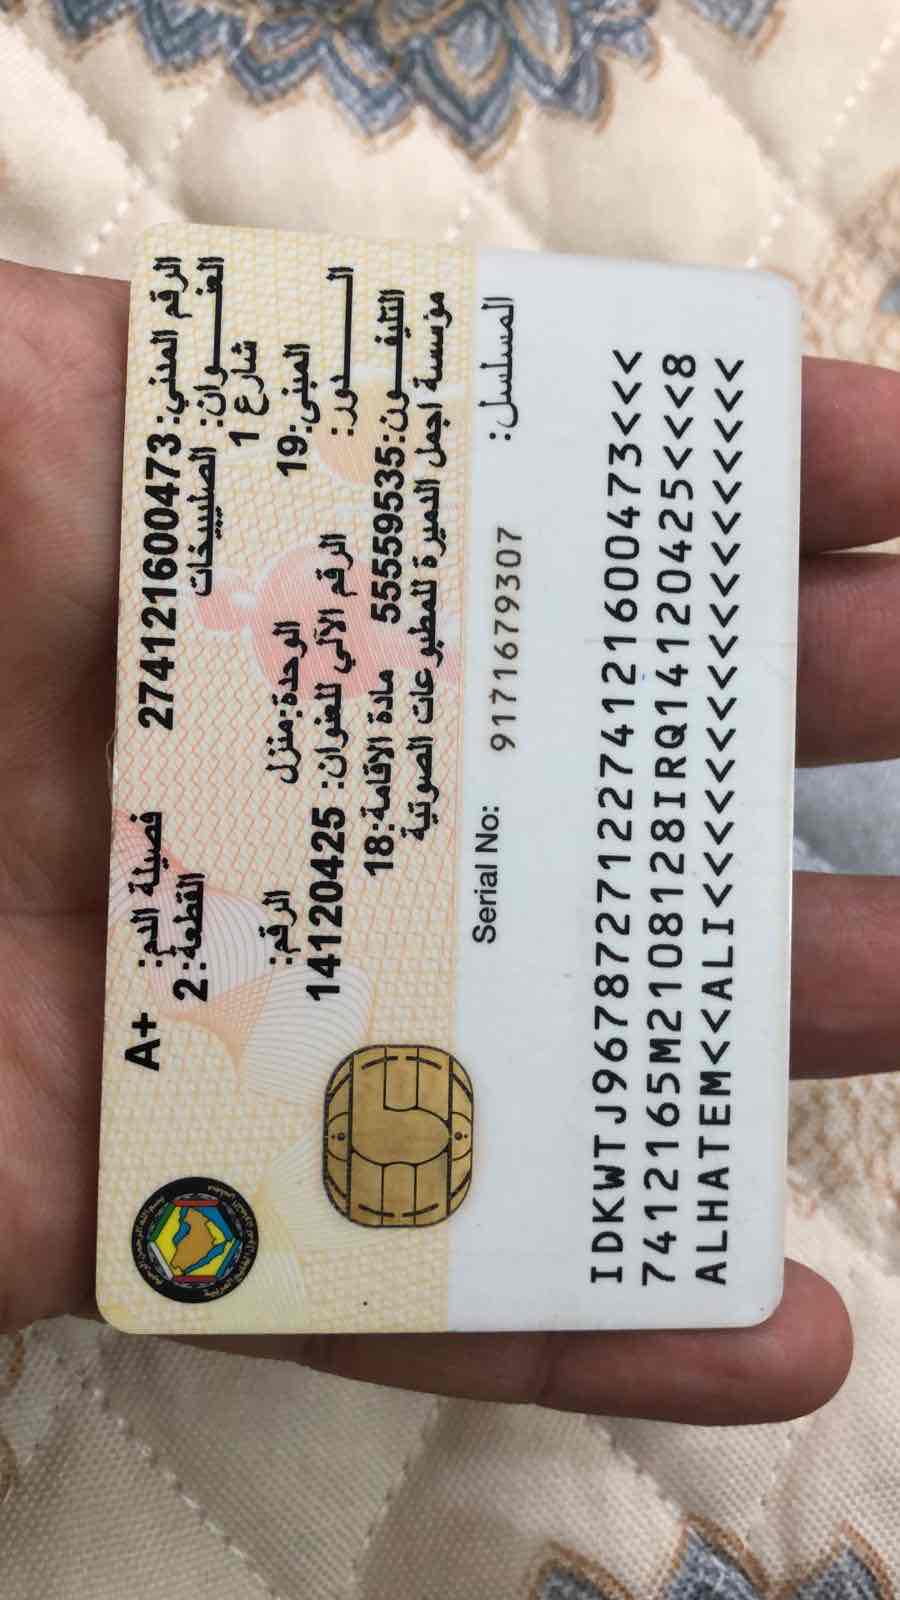 الرقم المدني: 274121600473 فصيلة الدم: A+
العنوان: الصليبيخات القطعة: 2
شارع 1
المبنى: 19 الوحدة: منزل الرقم:
الدور: الرقم الآلي للعنوان: 14120425
التليفون: 55559535 مادة الاقامة: 18
مؤسسة اجمل الدميرة للمطبوعات الصوتية
المسلسل: 9171679307 Serial No:
IDKWTJ967872712274121600473<<<
7412165M2108128IRQ14120425<<<8
ALHATEM<<ALI<<<<<<<<<<<<<<<<<<